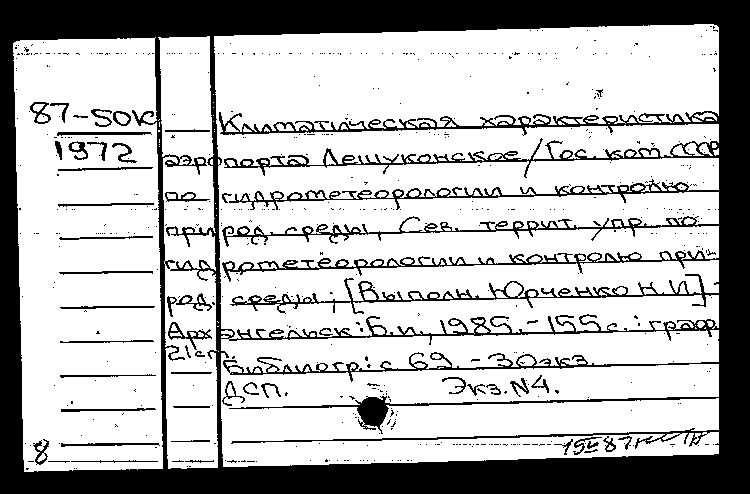 87-50к Климатическая характеристика
1972 аэропорта Лешуконское/Гос. ком. СССР
по гидрометеорологии и контролю
природ. среды, Сев. террит. упр. по
гидрометеорологии и контролю при-
род. среды; [Выполн. Юрченко Н.И.] -
Архангельск: Б.и., 1985. - 155 с.: граф.
21 см.
Библиогр.: с 69. - 30 экз.
ДСП. Экз. N4.
8